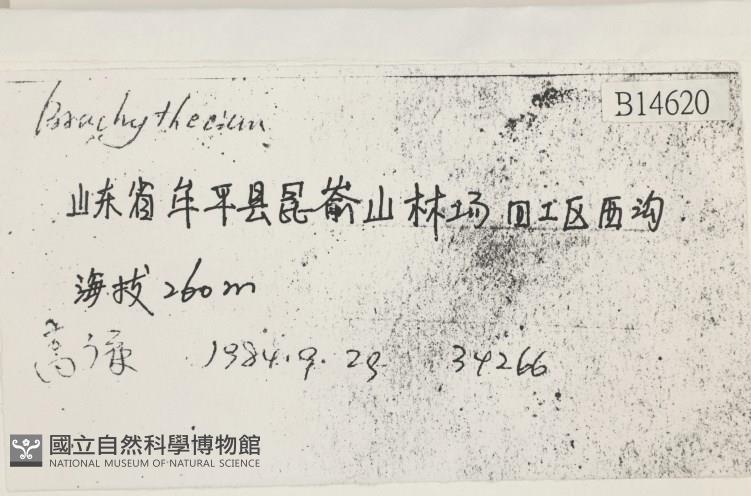 B14620
Brachythecium
山东省牟平县昆嵛山林场回工区西沟
海拔260m
1984.9.29 34266
國立自然科學博物館
NATIONAL MUSEUM OF NATURAL SCIENCE